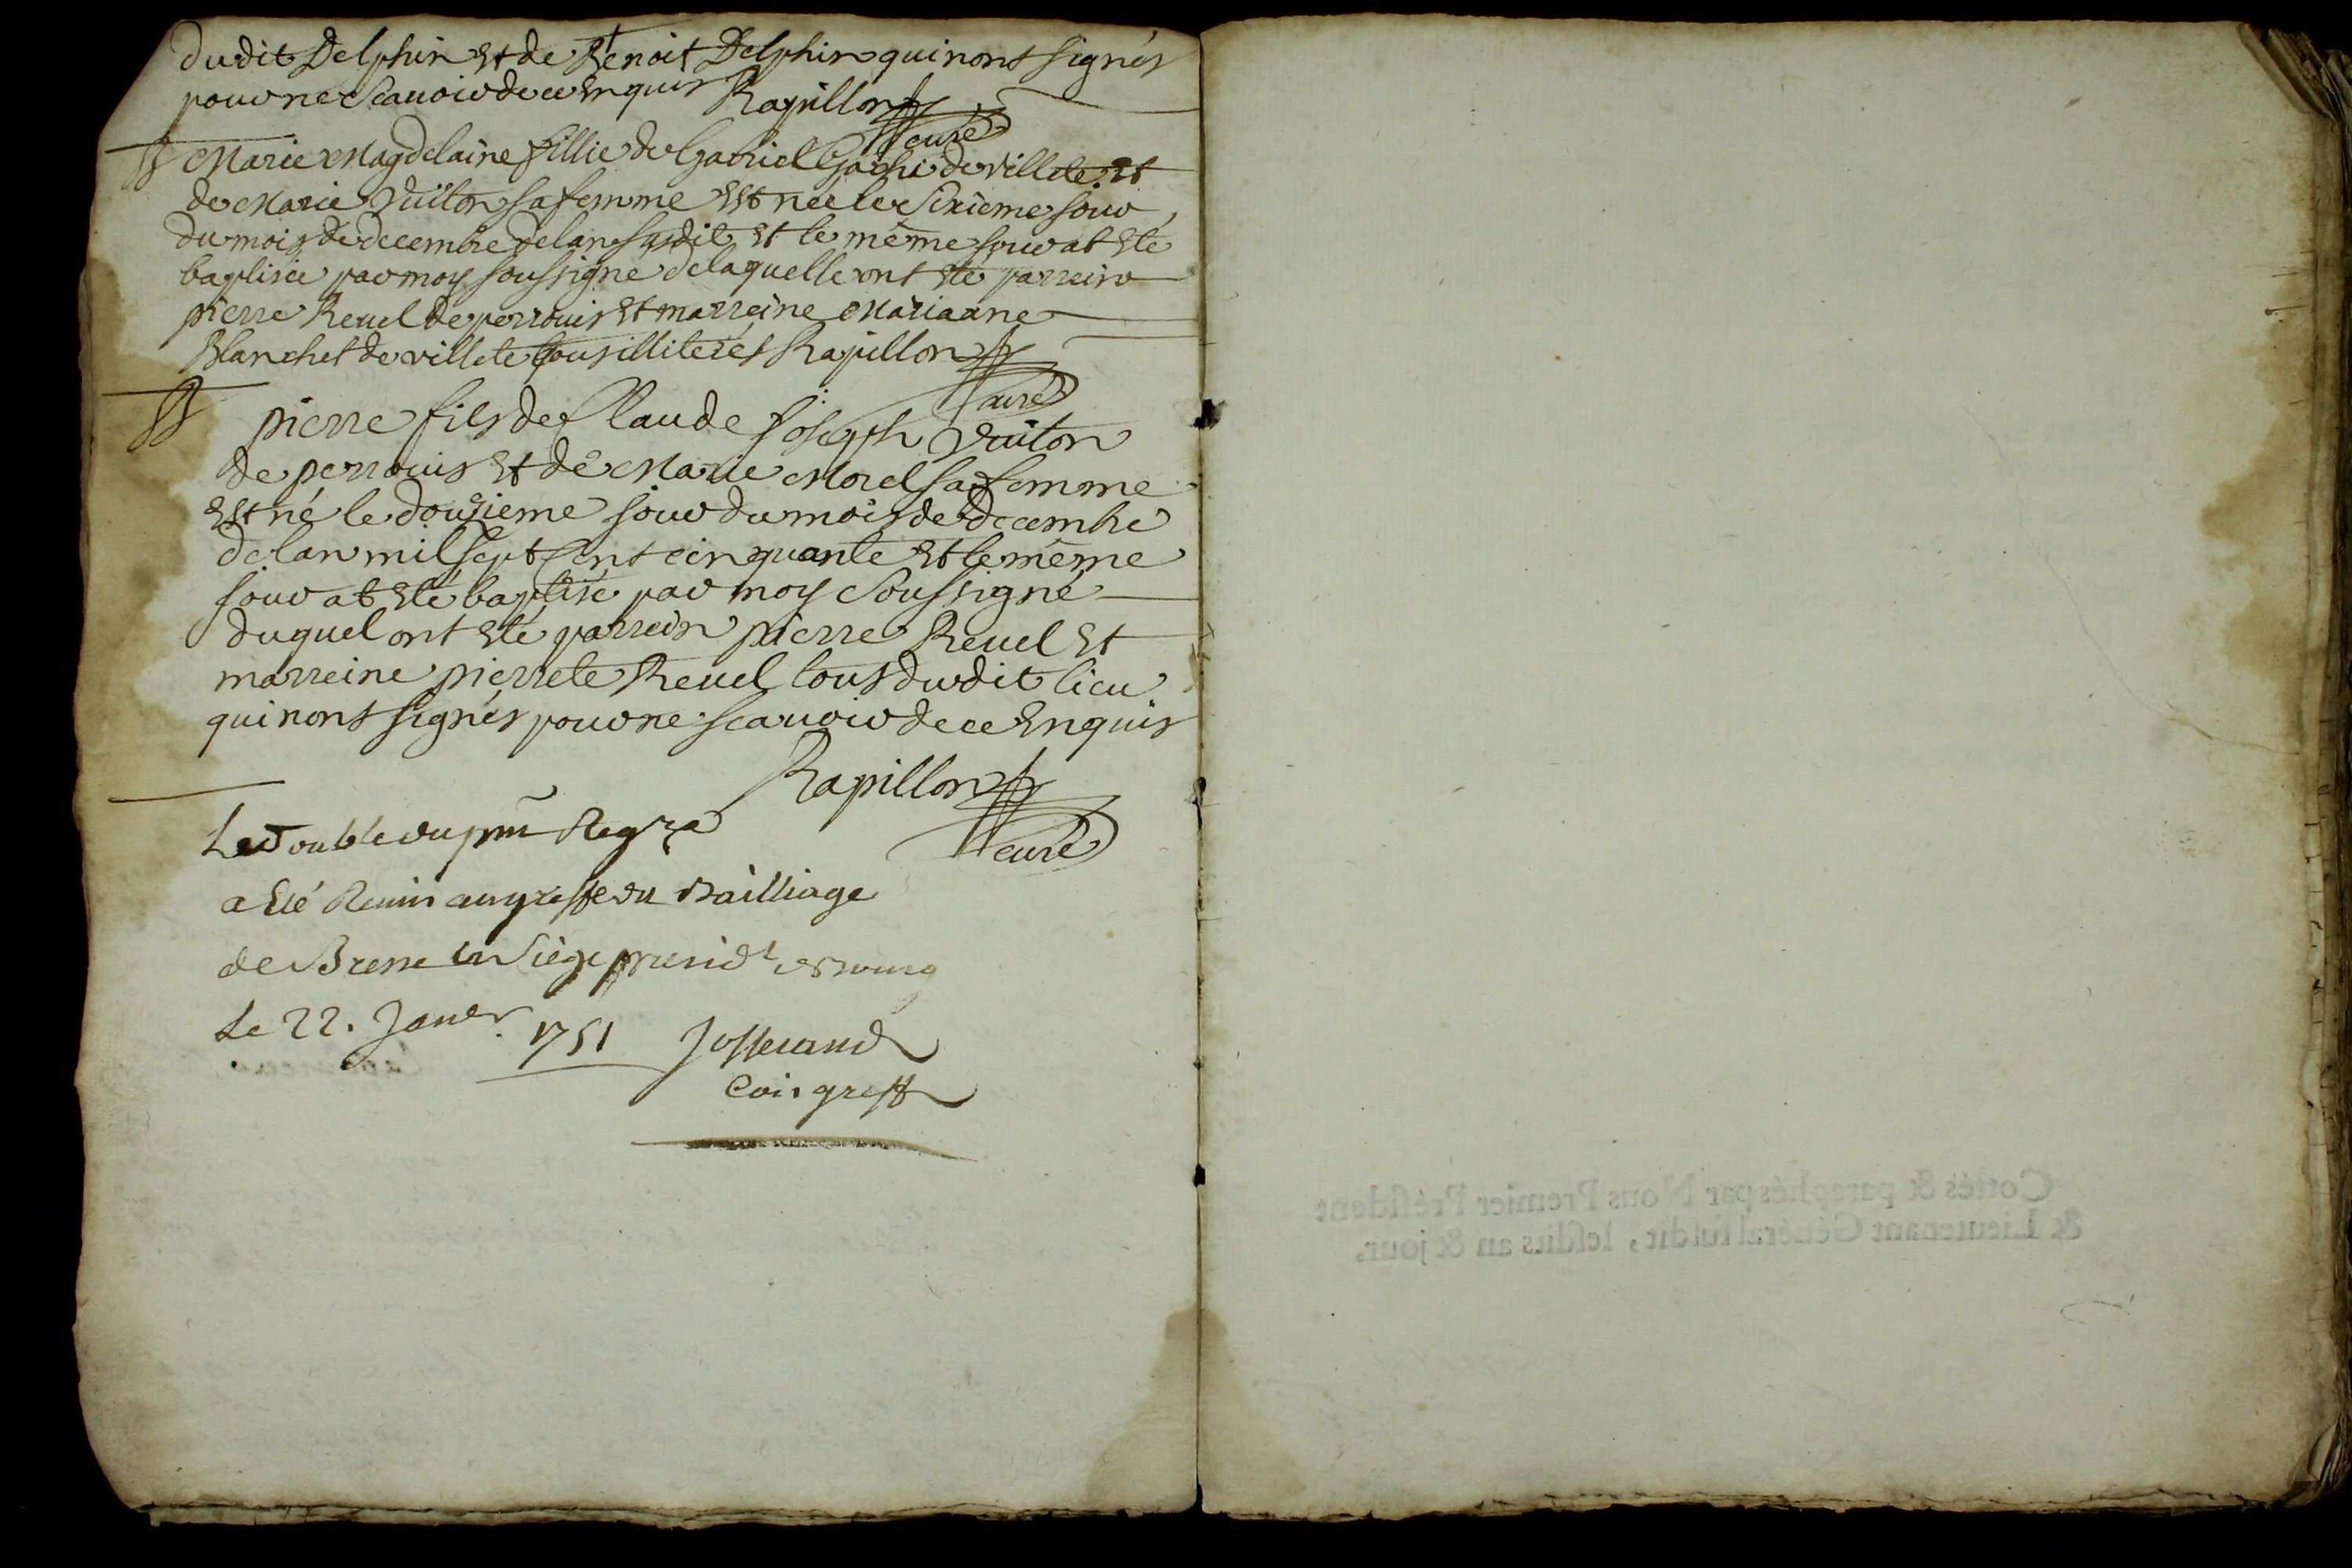 dudit Delphin et de Benoit Delphin qui nont signés
pour ne scauoir de ce enquis Rapillon
curé
Marie Magdelaine fillie de Gabriel de villete et
de Marie Vuiton sa femme est née le Sixieme jour
du mois de decembre de lan susdit et le même jour at eté
baptisée par moy soussigné de laquelle ont eté parrein
pierre Reuel de perrouis et marreine Mariaane
Blanchet de villete tous illiterés Rapillon
curé
pierre fils de Claude joseph Vuiton
de perrouis et de Marie Morel sa femme
est né le douzieme jour du mois de decembre
de lan mil sept cent cinquante et le même
jour at eté baptisé par moy Soussigné
duquel ont eté parrein pierre Reuel et
marreine pierrete Reuel tous dudit lieu
qui nont signés pour ne scauoir de ce enquis
Rapillon
curé
Le Double du pnt Regre
a Eté Remis au greffe du Bailliage
de Bresse et Siege presidl de Bourg
Le 22. Janer 1751 Josserand
Com greff
Cottés & paraphés par Nous Premier Président
& Lieutenant Général susdit, lesdits an & jour.